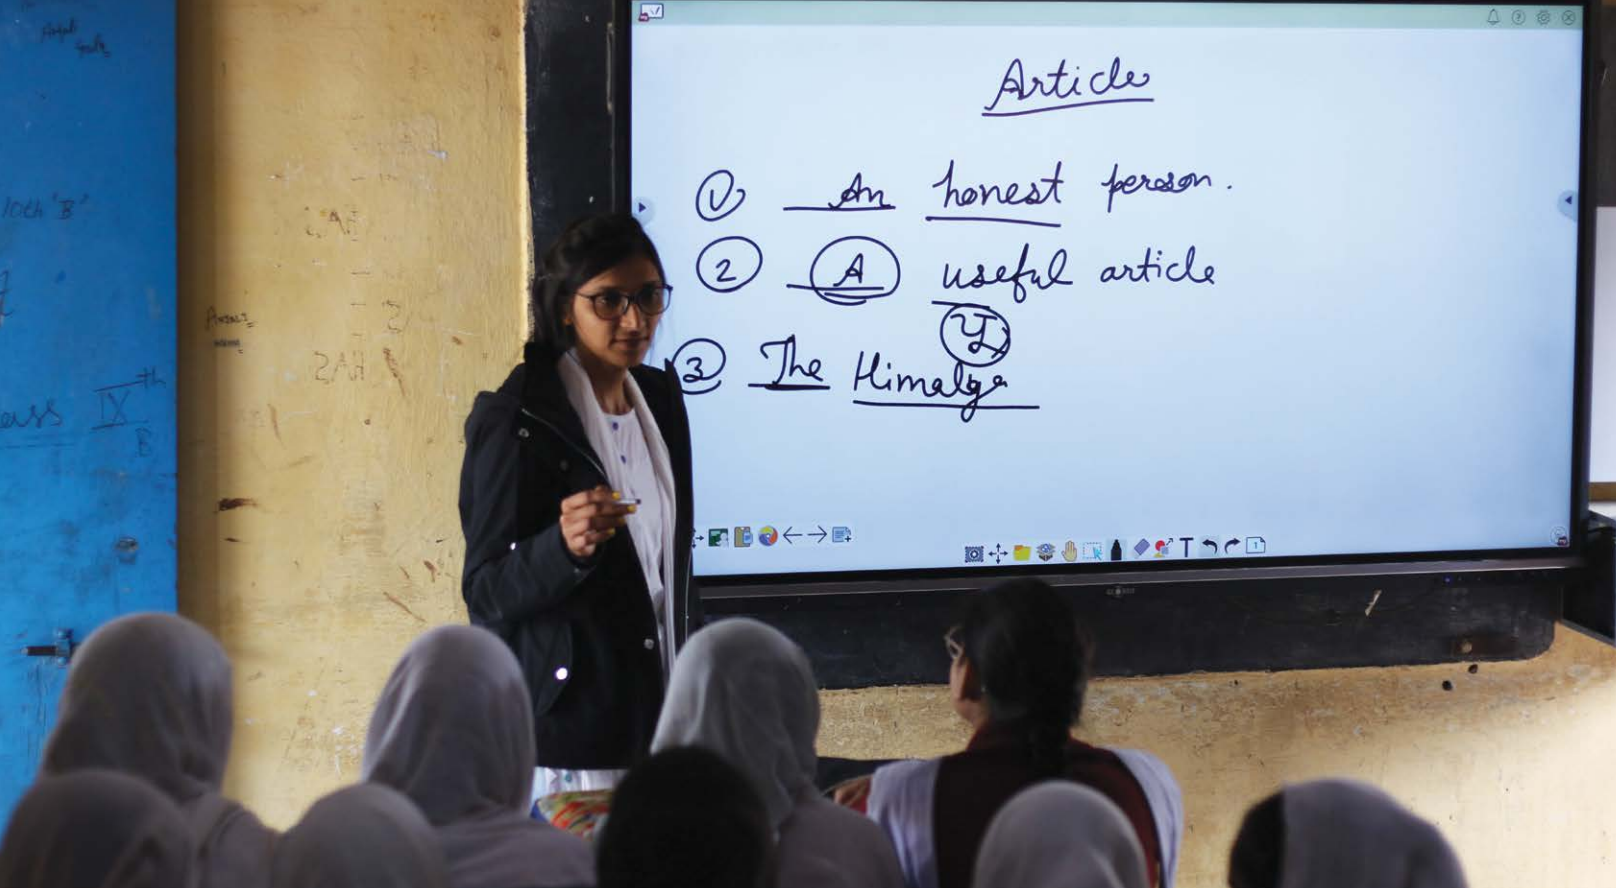 Article
1 An honest person.
2 A useful article
Y
3 The Himalya
10th 'B'
ass IXth
B